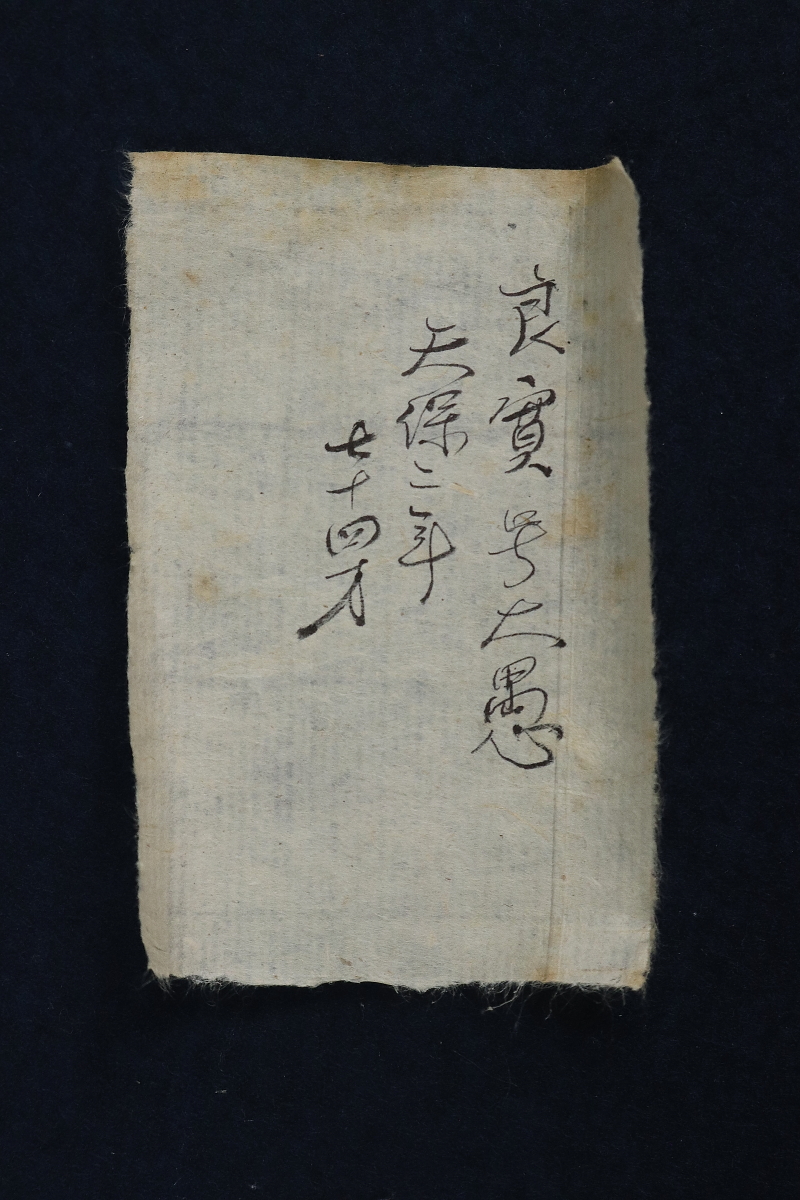 良寛号大愚
天保二年
七十四才